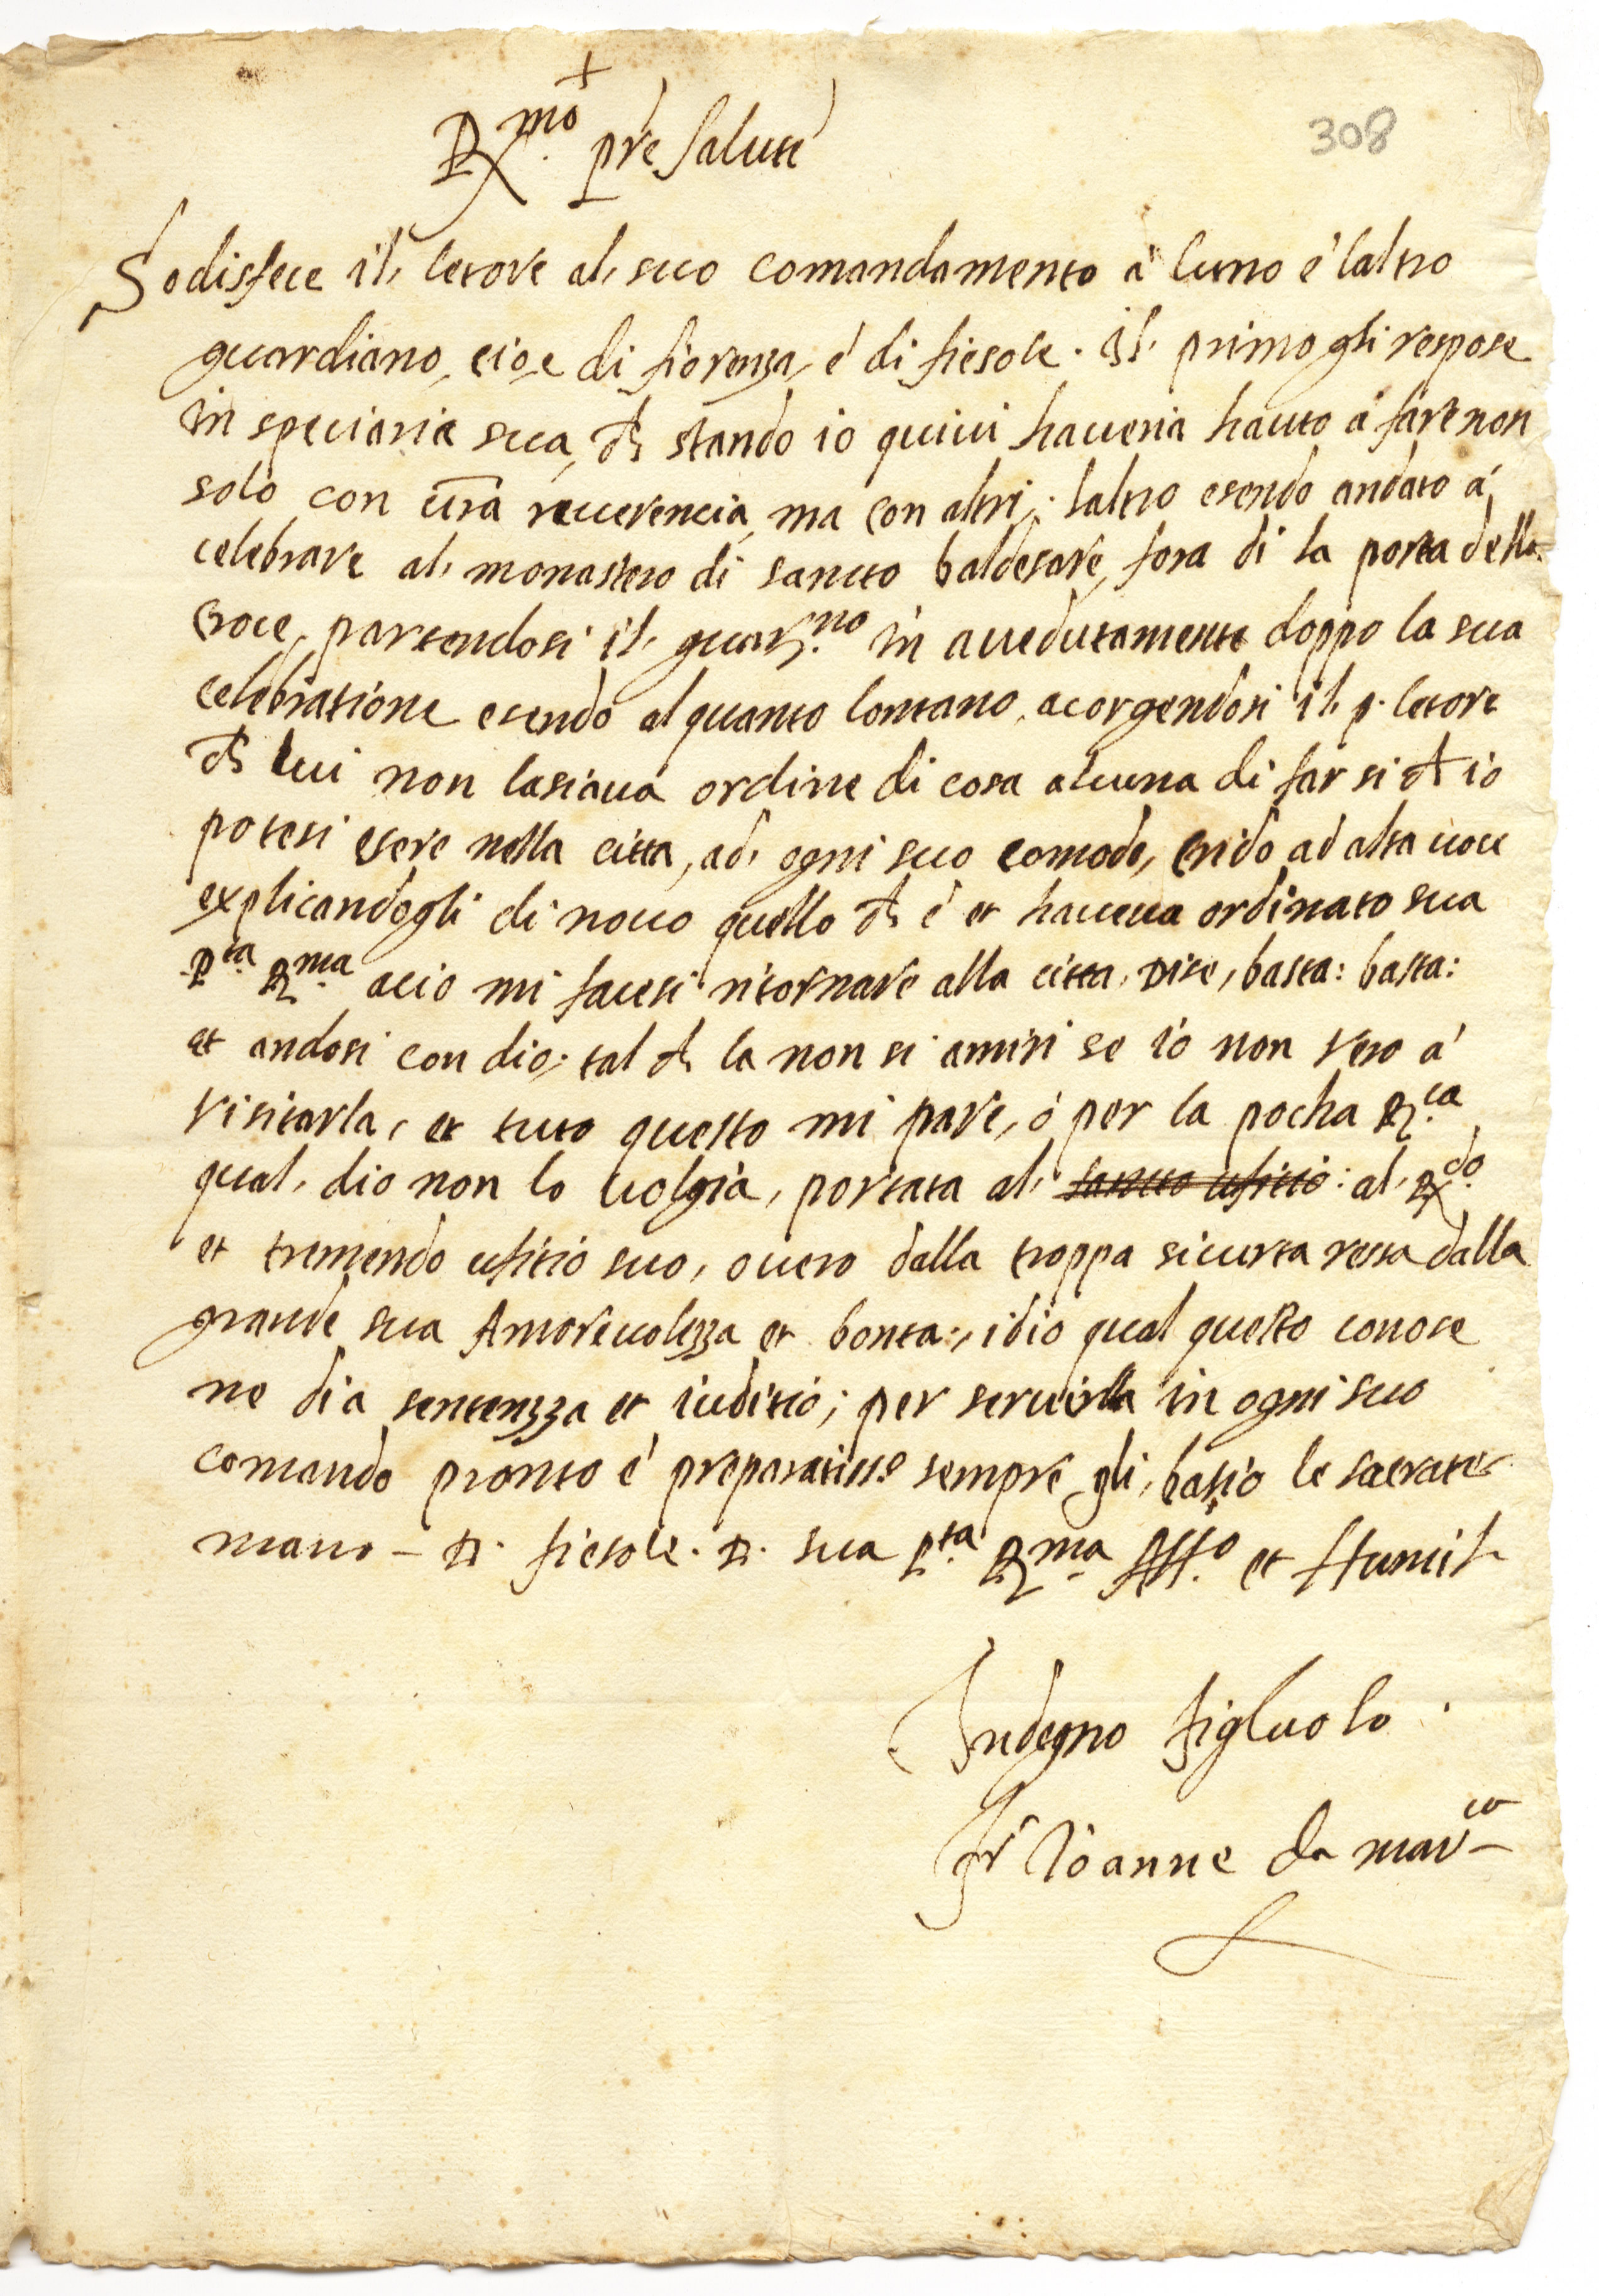 +
R.mo pre salute
308
Sodisfece il letore al suo comandamento a luno e laltro
guardiano, cioe di fiorenza, e di fiesole. Il primo gli respose
in speciaria sua, ch stando io quivi haveria hauto a fare non
solo con vra reverencia, ma con altri; laltro esendo andato a
celebrare al monastero di sancto baldesare, fora di la porta della
Croce, partendosi il guar.no in avedutamente doppo la sua
celebratione esendo al quanto lontano, acorgendosi il p. letore
ch lui non lasiava ordine di cosa alcuna di far si ch io
potesi esere nella citta, ad ogni suo comodo, crido ad alta voce
explicandogli di novo quello ch e et haveva ordinato sua
P.ta R.ma acio mi facesi ritornare alla citta, Dise, basta: basta:
et andosi con dio; tal ch la non si amiri se io non vero a
visitarla, et tuto questo mi pare, o per la pocha R.ca
qual, dio non lo volgia, portata al sancto ufitio: al R.do
et tremendo ufitio suo, overo dalla troppa sicurta resa dalla
grande sua Amorevolezza et bonta:, idio qual questo conose
ne dia sentenzza et iuditio; per servirla in ogni suo
comando pronto e preparatisso sempre gli, basio le sacrate
mano - D. fiesole. D. sua P.ta R.ma Aff.o et Humil
Indegno figluolo.
fr Ioanne da mar.co